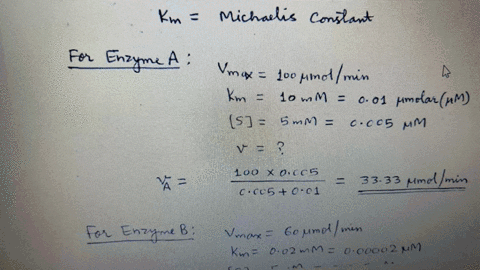 Km = Michaelis Constant
For Enzyme A :
Vmax = 100 μmol/min
Km = 10 mM = 0.01 μmolar (μM)
[S] = 5 mM = 0.005 μM
v = ?
vA = 100 × 0.005 / 0.005 + 0.01 = 33.33 μmol/min
For Enzyme B :
Vmax = 60 μmol/min
Km = 0.02 mM = 0.00002 μM